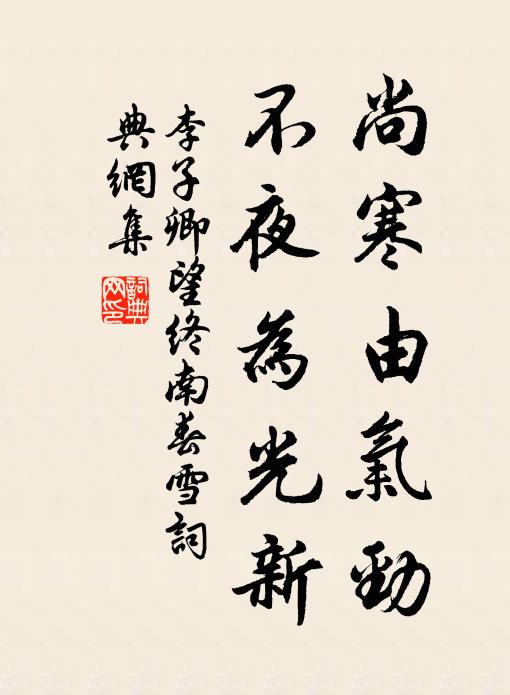 尚寒由氣勁
不夜為光新
李子卿望終南春雪詞
典網集
詞典
网印